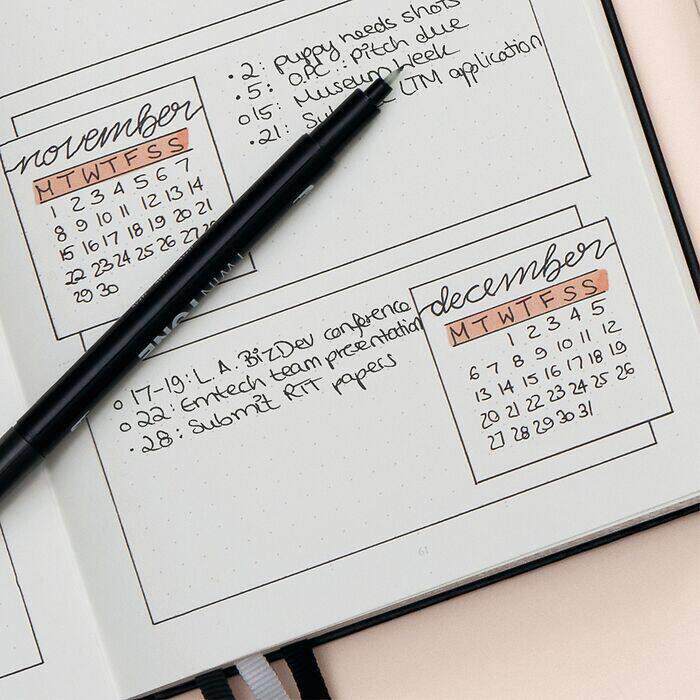 • 2: puppy needs shots
• 5: O.P.C.: pitch due
o 15: Museum Week
• 21: LTM application
november
M T W T F S S
1 2 3 4 5 6 7
8 9 10 11 12 13 14
15 16 17 18 19 20 21
22 23 24 25 26 27
29 30
TWIN TONE
december
M T W T F S S
1 2 3 4 5
6 7 8 9 10 11 12
13 14 15 16 17 18 19
20 21 22 23 24 25 26
27 28 29 30 31
o 17-19: L.A. BizDev conference
o 22: Emtech team presentation
• 28: Submit RIT papers
61